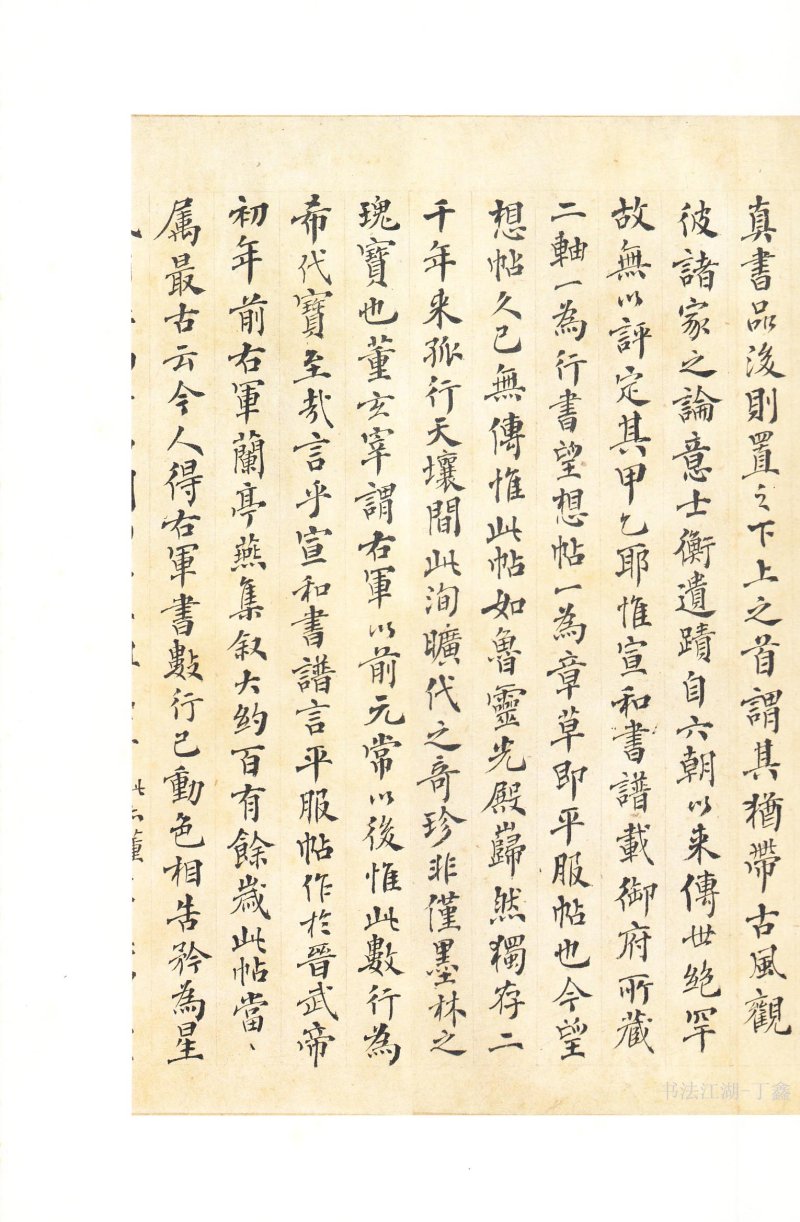 真書品後則置之下上之首謂其猶帶古風觀
彼諸家之論意士衡遺蹟自六朝以來傳世絕罕
故無以評定其甲乙耶惟宣和書譜載御府所藏
二軸一為行書望想帖一為章草即平服帖也今望
想帖久已無傳惟此帖如魯靈光殿巋然獨存二
千年來孤行天壤間此洵曠代之奇珍非僅墨林之
瑰寶也董玄宰謂右軍以前元常以後惟此數行為
希代寶至哉言乎宣和書譜言平服帖作於晉武帝
初年前右軍蘭亭燕集叙大約百有餘歲此帖當〻
属最古云今人得右軍書數行已動色相告矜為星
书法江湖-丁鑫